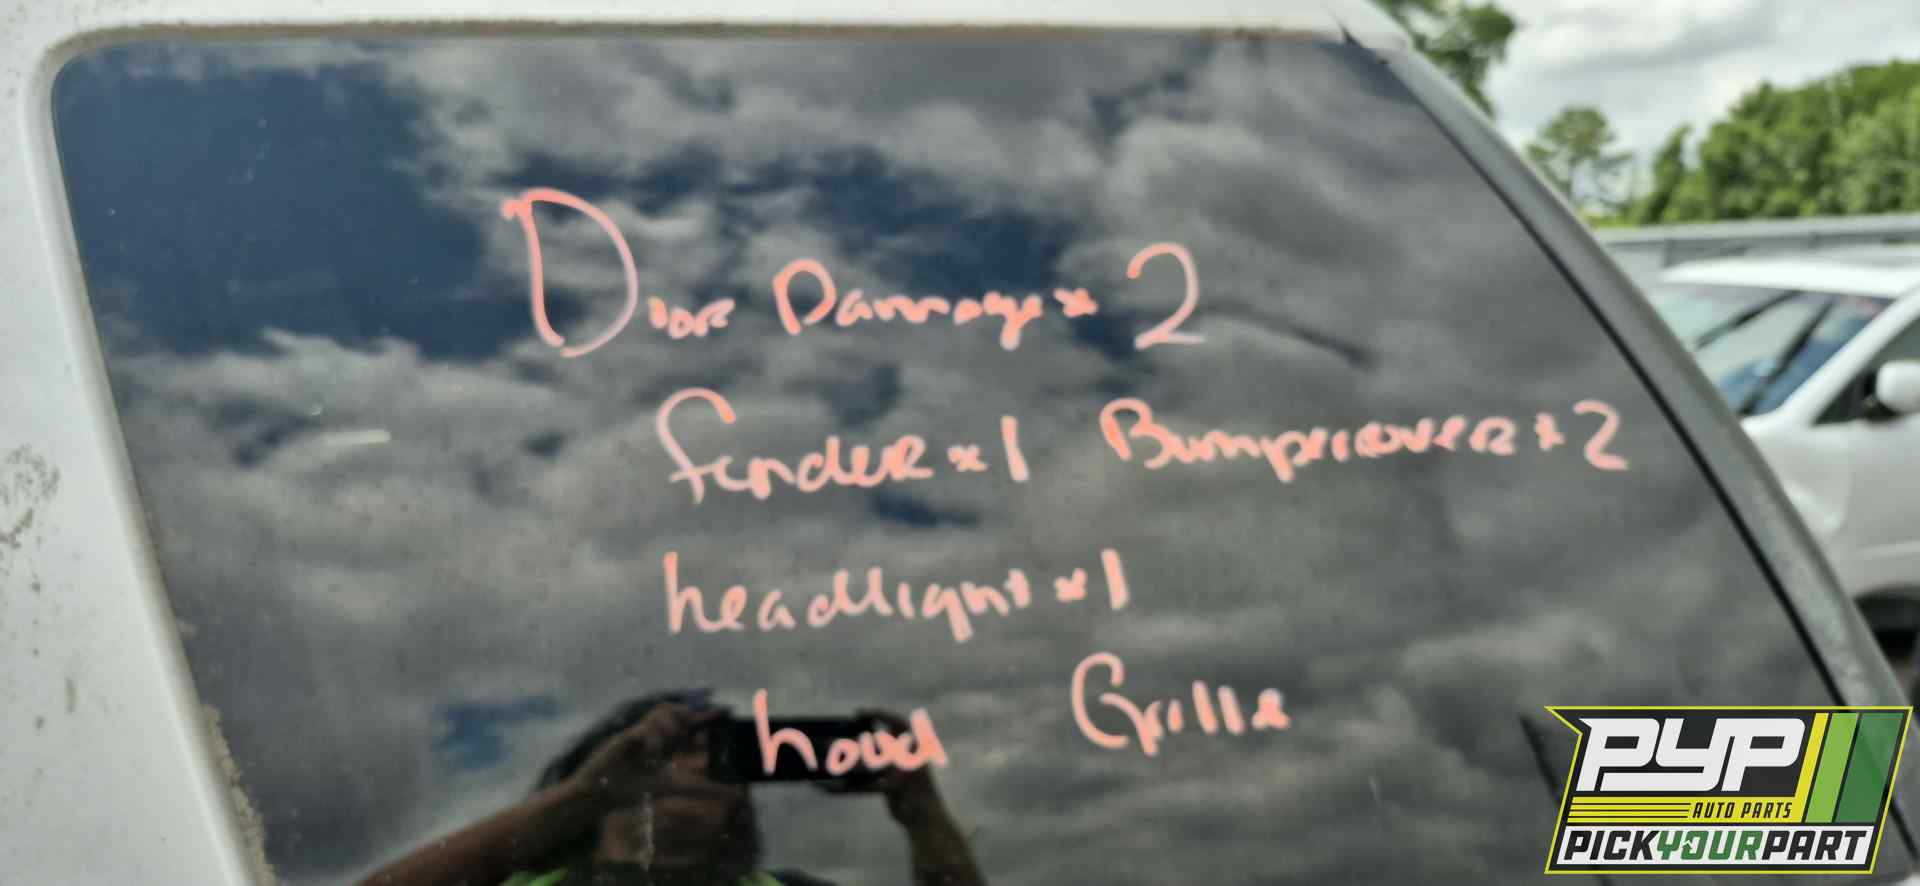 Door Damage x 2
fender x 1 Bumpercover x 2
headlight x 1
hood Grille
PYP
AUTO PARTS
PICKYOURPART